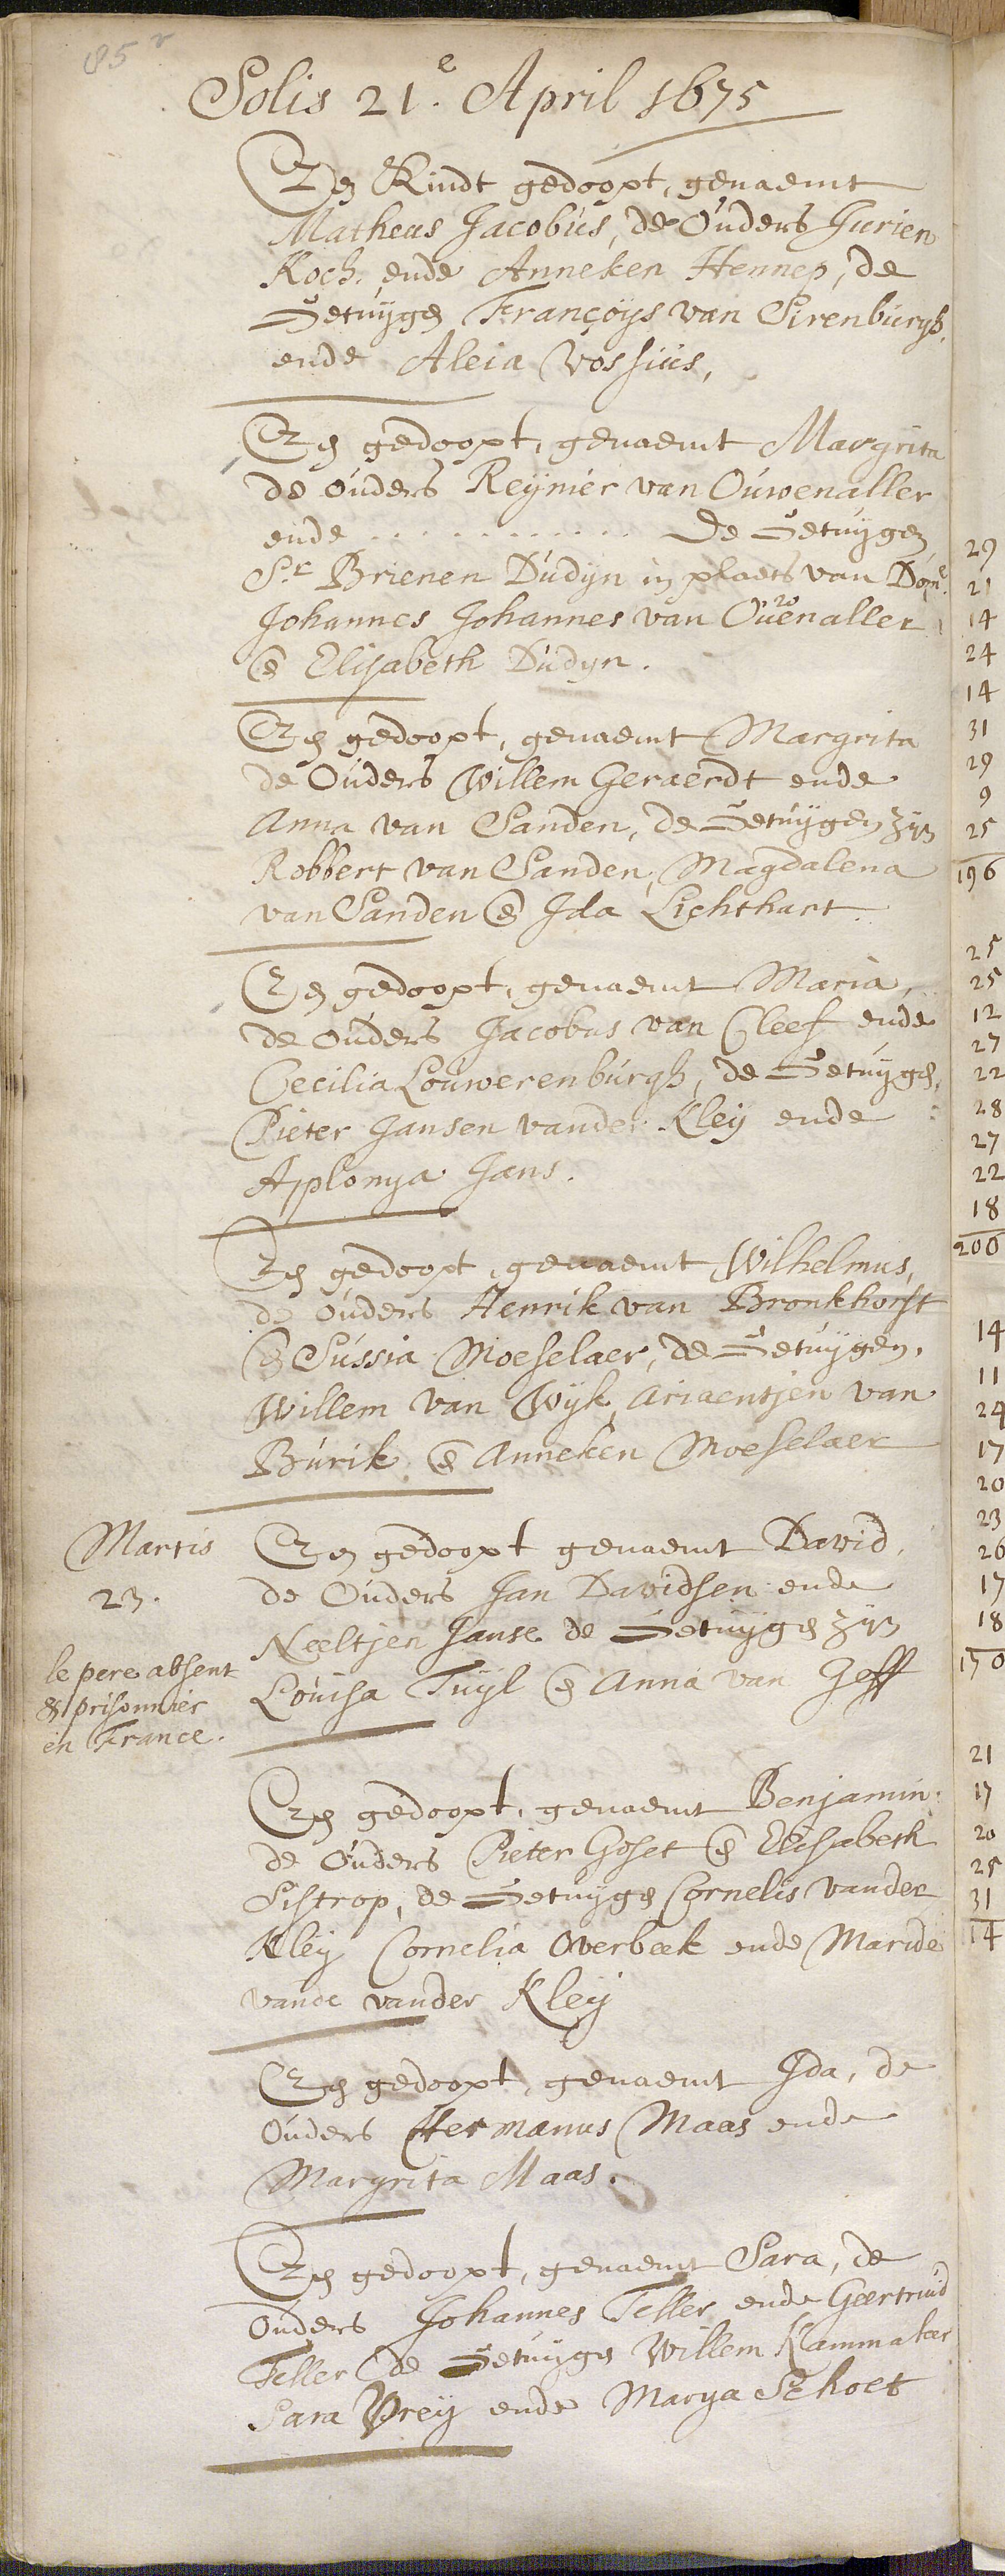 85 v
Solis 21.e April 1675
Een Kindt gedoopt, genaemt
Matheus Jacobus, de Ouders Jurien
Koch, ende Anneken Hennep, de
Getuygen Françoys van Sirenburgh,
ende Aleia Vossius,
Een gedoopt, genaemt Margrita
de ouders Reynier van Ouwenaller
ende . . . . . . . . . . . . De Getuygen
Sr. Brienen Dudyn in plaets van Dome.
Johannes Johannes van Ouwenaller
en Elisabeth Dudyn.
Een gedoopt, genaemt Margrita
de Ouders Willem Geraerdt ende
Anna van Sanden, de Getuygen zyn
Robbert van Sanden, Magdalena
van Sanden en Ida Lichthart.
Een gedoopt, genaemt Maria,
de Ouders Jacobus van Cleef ende
Cecilia Louwerenburgh, de Getuygen,
Pieter Jansen vander Kley ende
Aplonya Jans.
Een gedoopt, genaemt Wilhelmus,
de ouders Henrik van Bronkhorst
en Sussia Moeselaer, de Getuygen,
Willem van Wyk, Ariaentjen van
Burik en Anneken Moeselaer
Martis
23.
le pere absent
et prisonnier
en France.
Een gedoopt genaemt David,
de Ouders Jan Davidsen ende
Neeltjen Janse de Getuygen zyn
Louisa Tuyl en Anna van Geff
Een gedoopt, genaemt Benjamin,
de Ouders Pieter Goset en Elisabeth
Sistrop, de Getuygen Cornelis vander
Kley Cornelia Overbeek ende Maride
vande vander Kley
Een gedoopt, genaemt Ida, de
Ouders Hermanus Maas ende
Margrita Maas.
Een gedoopt, genaemt Sara, de
Ouders Johannes Teller ende Geertruid
Teller de Getuygen Willem Kammaker
Sara Vrey ende Marya Schoet
29
21
14
24
14
31
29
9
25
196
25
25
12
27
22
28
27
22
18
200
14
11
24
17
20
23
26
17
18
170
21
17
20
25
31
14